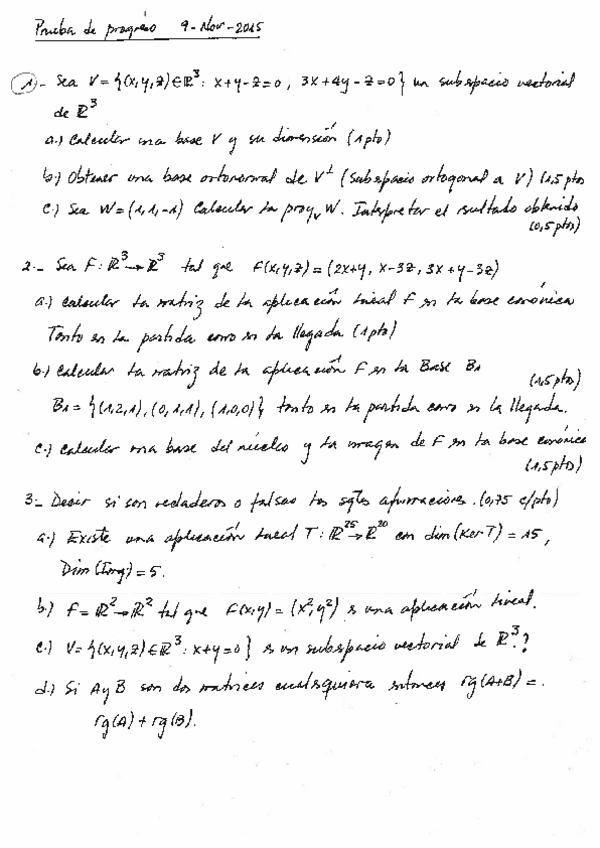 Prueba de progreso 9-Nov-2015
1.- Sea V={(x,y,z)∈ℝ³: x+y-z=0, 3x+4y-z=0} un subespacio vectorial
de ℝ³
a.) Calcular una base V y su dimensión (1pto)
b.) Obtener una base ortonormal de V⊥ (subespacio ortogonal a V) (1,5 ptos
c.) Sea W=(1,1,-1) Calcular la proy_v W. Interpretar el resultado obtenido
(0,5pto)
2.- Sea F: ℝ³→ℝ³ tal que F(x,y,z)=(2x+y, x-3z, 3x+y-3z)
a.) Calcular la matriz de la aplicación lineal F en la base canónica
Tanto en la partida como en la llegada (1pto)
b.) Calcular la matriz de la aplicación F en la Base B₁
(1,5ptos)
B₁={(1,2,1),(0,1,1),(1,0,0)} tanto en la partida como en la llegada.
c.) Calcular una base del núcleo y la imagen de F en la base canónica
(1,5ptos)
3.- Decir si son verdaderos o falsas las sgtes afirmaciones. (0,75 c/pto)
a.) Existe una aplicación lineal T: ℝ²⁵→ℝ²⁰ con dim(Ker T)=15,
Dim(Img)=5.
b.) F=ℝ²→ℝ² tal que F(x,y)=(x²,y²) es una aplicación lineal.
c.) V={(x,y,z)∈ℝ³: x+y=0} es un subespacio vectorial de ℝ³.?
d.) Si A y B son dos matrices cualesquiera entonces rg(A+B)=
rg(A)+rg(B).